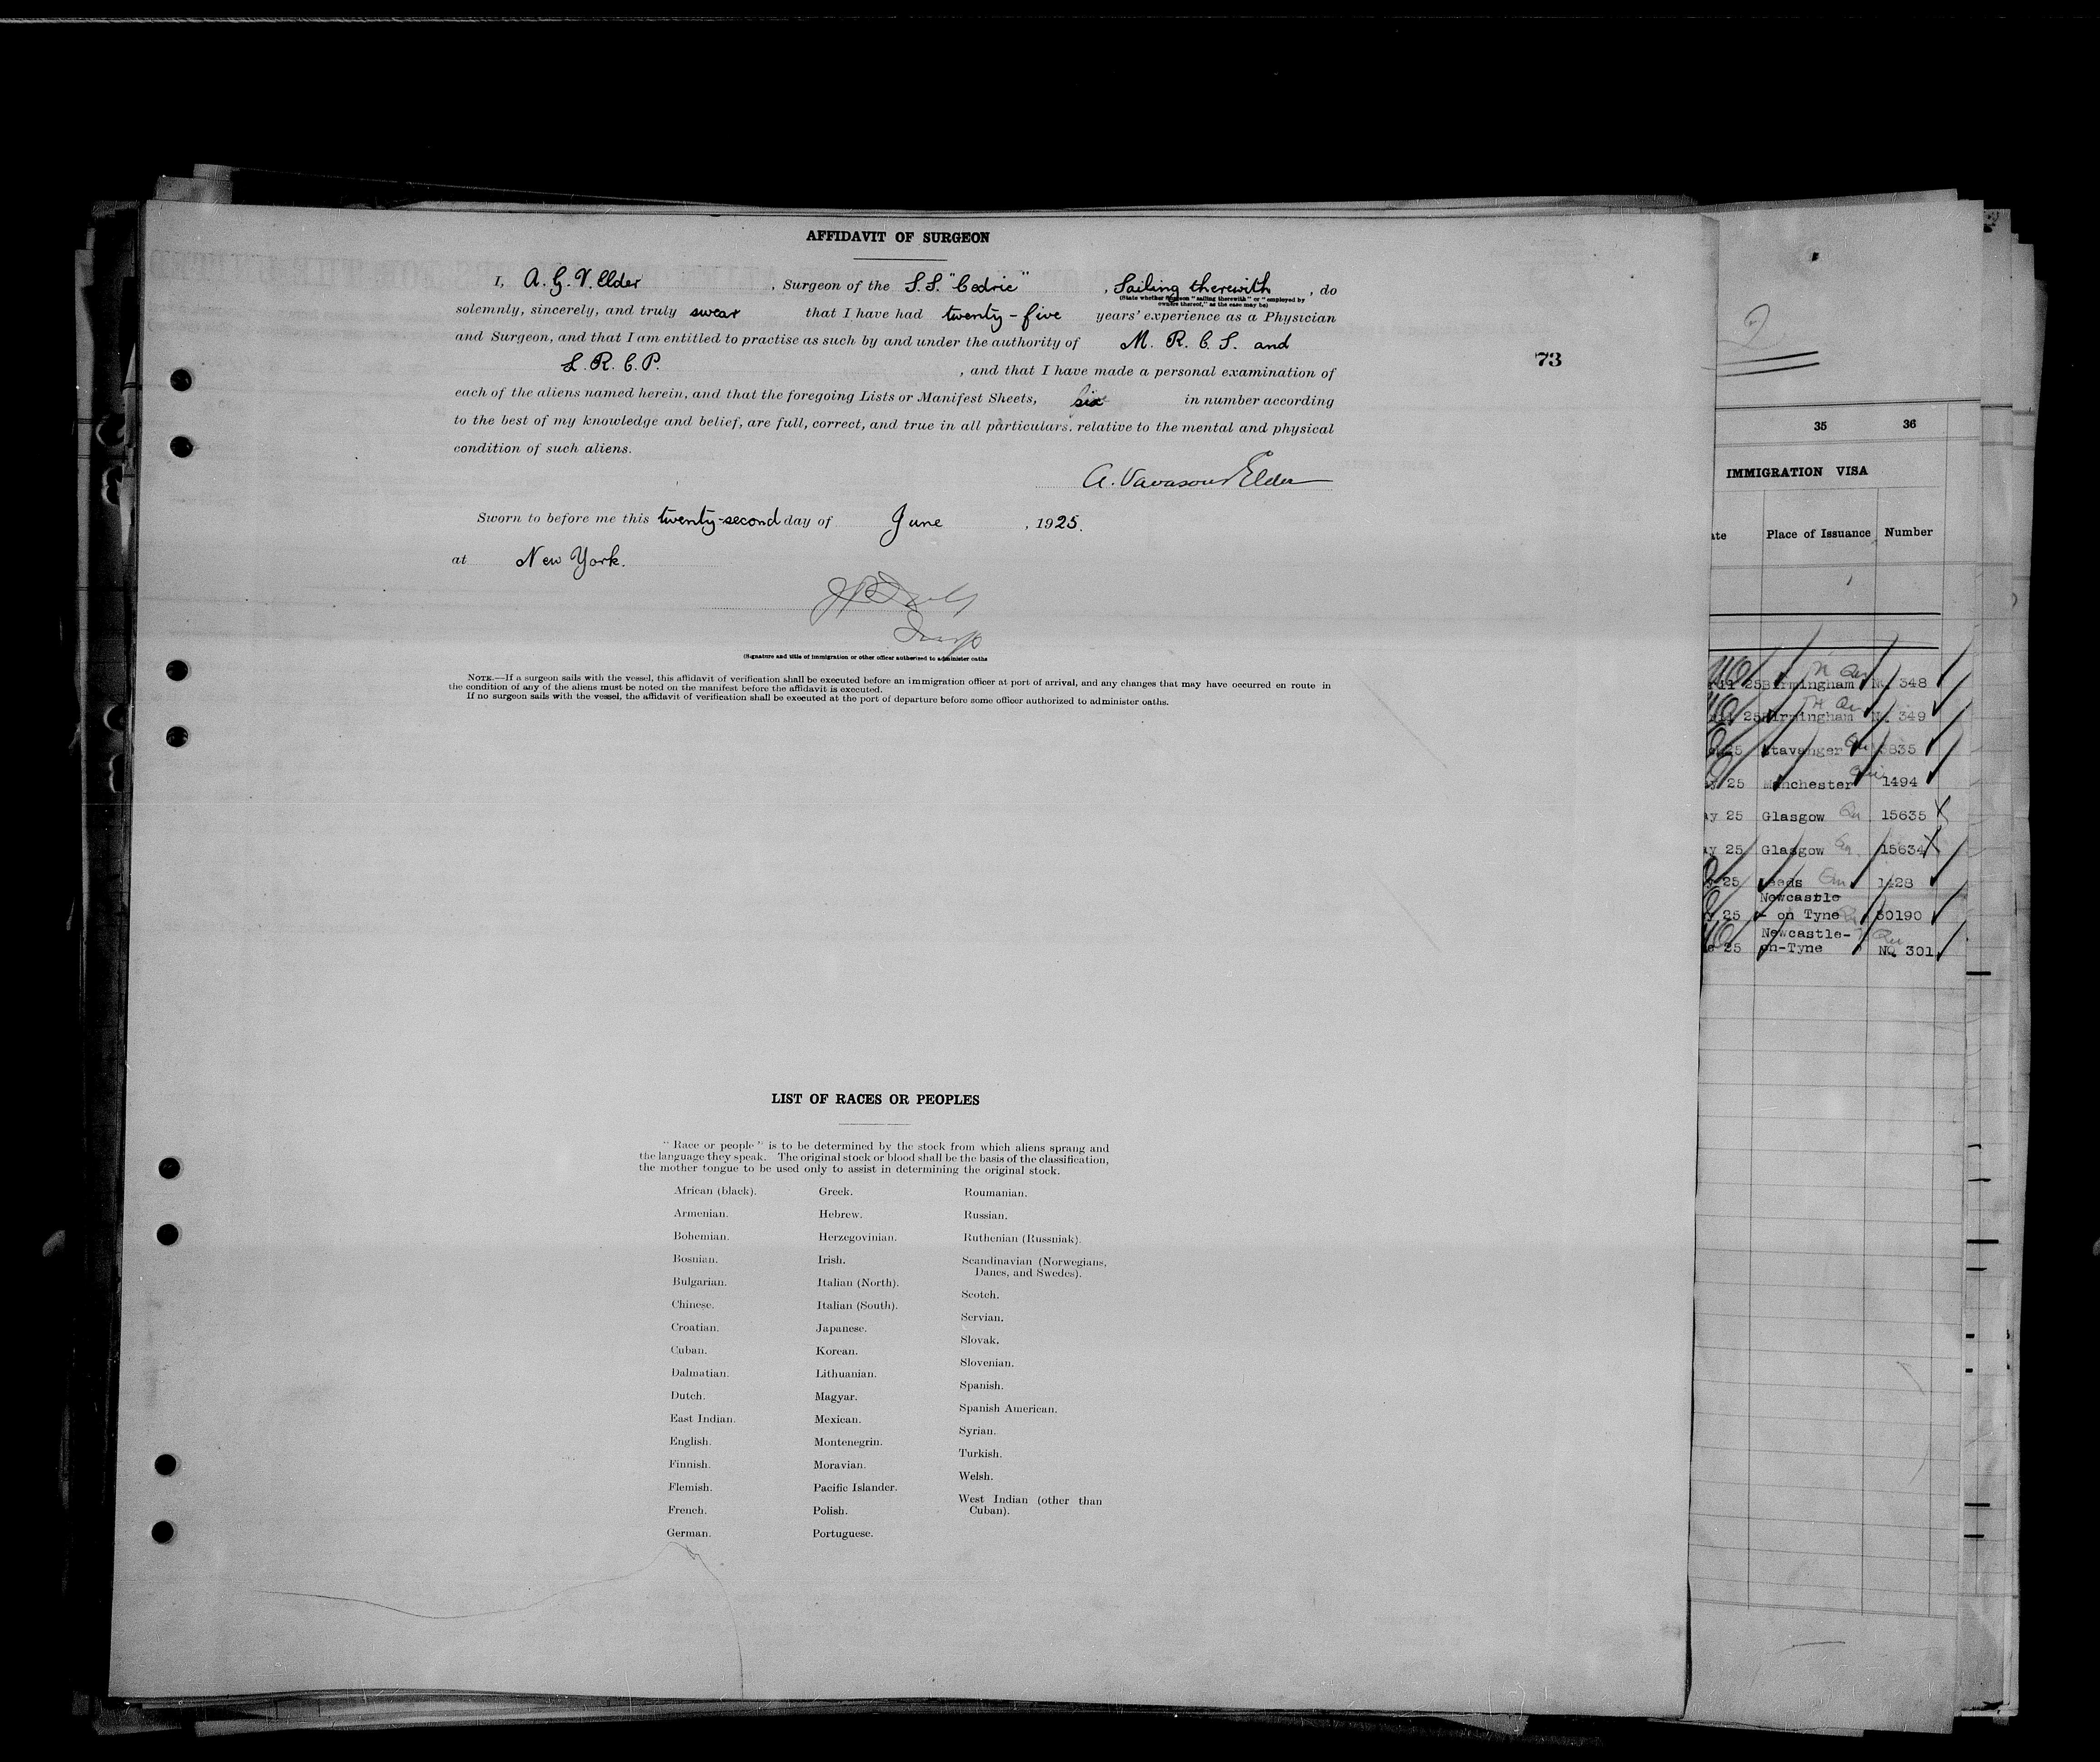 AFFIDAVIT OF SURGEON
I, A. G. V. Elder, Surgeon of the S.S. "Cedric", Sailing therewith, do
(State whether surgeon "sailing therewith" or "employed by
owners thereof," as the case may be)
solemnly, sincerely, and truly swear that I have had twenty-five years' experience as a Physician
and Surgeon, and that I am entitled to practise as such by and under the authority of M. R. C. S. and
L. R. C. P. , and that I have made a personal examination of
73
each of the aliens named herein, and that the foregoing Lists or Manifest Sheets, six in number according
to the best of my knowledge and belief, are full, correct, and true in all particulars, relative to the mental and physical
condition of such aliens.
A. Vavasour Elder
Sworn to before me this twenty-second day of June, 1925.
at New York.
Insp
(Signature and title of immigration or other officer authorized to administer oaths
NOTE.—If a surgeon sails with the vessel, this affidavit of verification shall be executed before an immigration officer at port of arrival, and any changes that may have occurred en route in
the condition of any of the aliens must be noted on the manifest before the affidavit is executed.
If no surgeon sails with the vessel, the affidavit of verification shall be executed at the port of departure before some officer authorized to administer oaths.
LIST OF RACES OR PEOPLES
"Race or people" is to be determined by the stock from which aliens sprang and
the language they speak. The original stock or blood shall be the basis of the classification,
the mother tongue to be used only to assist in determining the original stock.
African (black).
Armenian.
Bohemian.
Bosnian.
Bulgarian.
Chinese.
Croatian.
Cuban.
Dalmatian.
Dutch.
East Indian.
English.
Finnish.
Flemish.
French.
German.
Greek.
Hebrew.
Herzegovinian.
Irish.
Italian (North).
Italian (South).
Japanese.
Korean.
Lithuanian.
Magyar.
Mexican.
Montenegrin.
Moravian.
Pacific Islander.
Polish.
Portuguese.
Roumanian.
Russian.
Ruthenian (Russniak).
Scandinavian (Norwegians,
Danes, and Swedes).
Scotch.
Servian.
Slovak.
Slovenian.
Spanish.
Spanish American.
Syrian.
Turkish.
Welsh.
West Indian (other than
Cuban).
2
35 36
IMMIGRATION VISA
Place of Issuance Number
25 Birmingham NQ 348
25 Birmingham NQ 349
25 Stavanger 3835
25 Manchester 1494
25 Glasgow 15635
25 Glasgow 15634
25 Leeds 1428
Newcastle
25 - on Tyne 30190
Newcastle-
25 on-Tyne NQ 301